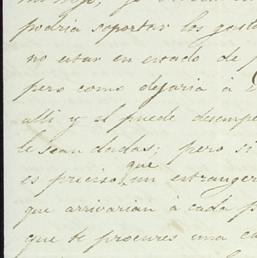 podria soportar los gasto
no estar en estado de p
pero como dejaria à
alli y el puede desempe
le sean dadas; pero si
es preciso que un extranger
que arrivarian à cada p
que te procures una ca